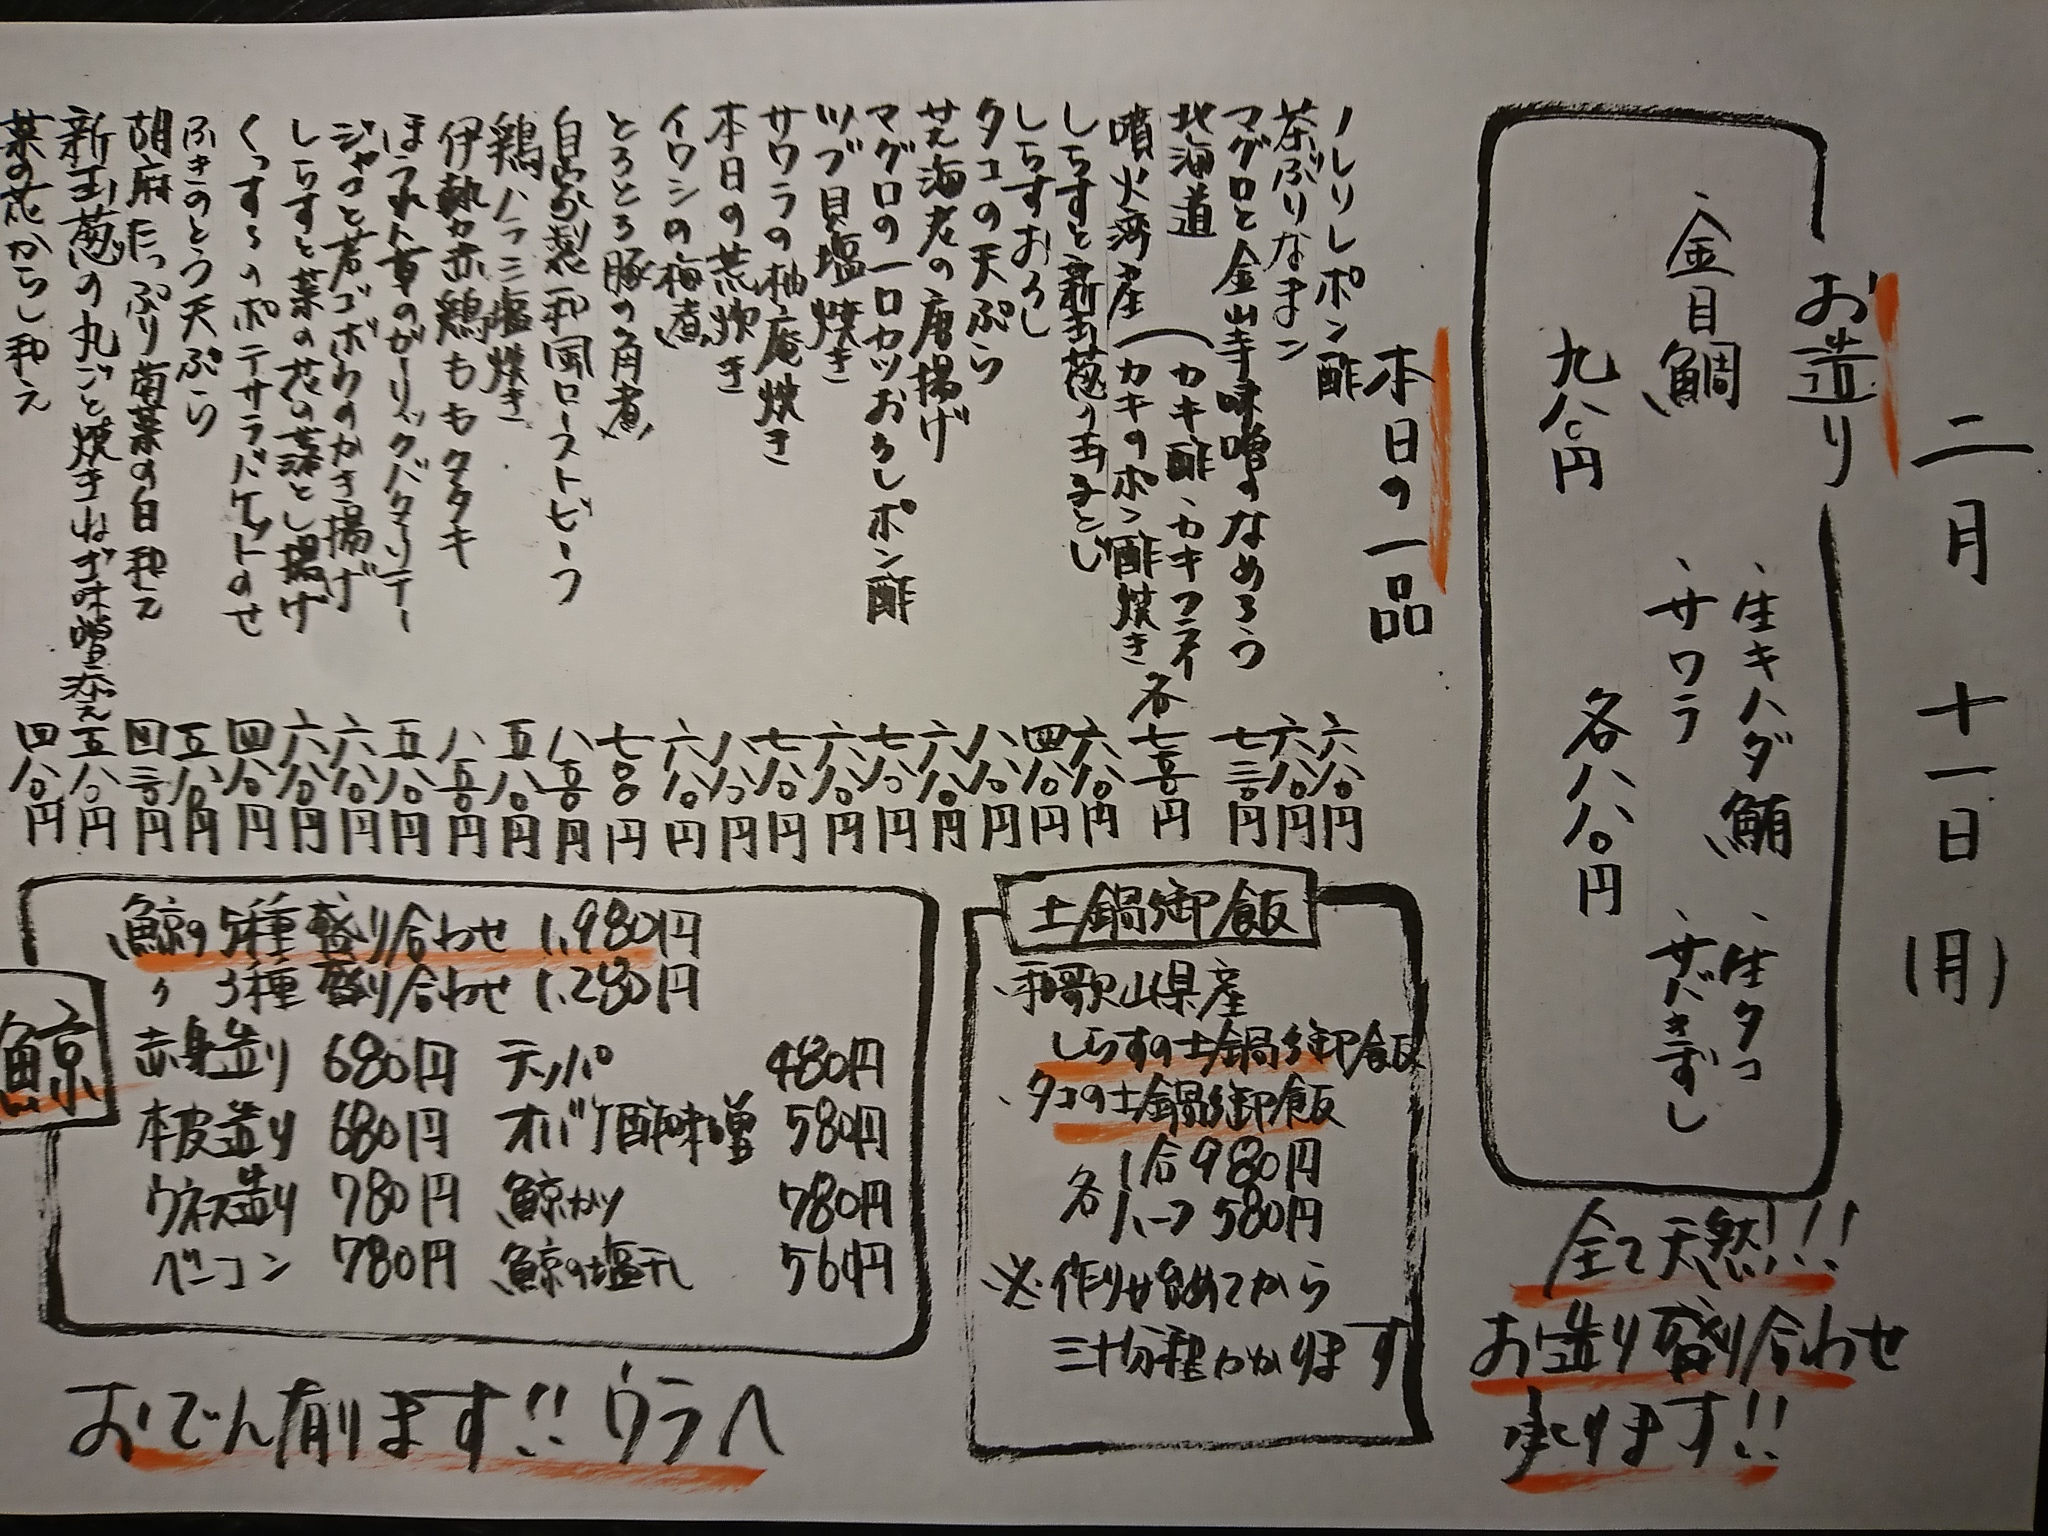 二月十一日(月)
お造り
、生キハダ鮪
、生タコ
、金目鯛
、サワラ
、サバきずし
九八〇円
各八八〇円
全て天然!!!
お造り盛り合わせ
承ります!!
本日の一品
ノレソレポン酢 六八〇円
茶ぶりなまこ 六八〇円
マグロと金山寺味噌のなめろう 七三〇円
北海道
噴火湾産
(カキ酢、カキフライ
カキのポン酢焼き 各七五〇円
しらすと新玉葱の玉子とじ 六八〇円
しらすおろし 四八〇円
タコの天ぷら 八八〇円
芝海老の唐揚げ 六八〇円
マグロの一口カツおろしポン酢 七八〇円
ツブ貝塩焼き 六八〇円
サワラの柚庵焼き 七八〇円
本日の荒炊き 八八〇円
イワシの梅煮 六八〇円
とろとろ豚の角煮 七八〇円
自家製和風ローストビーフ 八五〇円
鶏ハラミ塩焼き 五八〇円
伊勢赤鶏ももタタキ 八五〇円
ほうれん草のガーリックバターソテー 五八〇円
ジャコと若ゴボウのかき揚げ 六八〇円
しらすと菜の花の落とし揚げ 六八〇円
くっすんのポテサラバケットのせ 四八〇円
ふきのとう天ぷら 五八〇円
胡麻たっぷり菊菜の白和え 四三〇円
新玉葱の丸ごと焼きねぎ味噌添え 五八〇円
菜の花からし和え 四八〇円
土鍋御飯
、和歌山県産
しらすの土鍋御飯
、タコの土鍋御飯
各 1合 980円
ハーフ 580円
※作り始めてから
三十分程かかります
鯨
鯨の5種盛り合わせ 1,980円
〃 3種盛り合わせ 1,280円
赤身造り 680円 テッパ 480円
本皮造り 680円 オバケ酢味噌 580円
ウネス造り 780円 鯨カツ 780円
ベーコン 780円 鯨の塩干し 560円
おでん有ります!! ウラへ